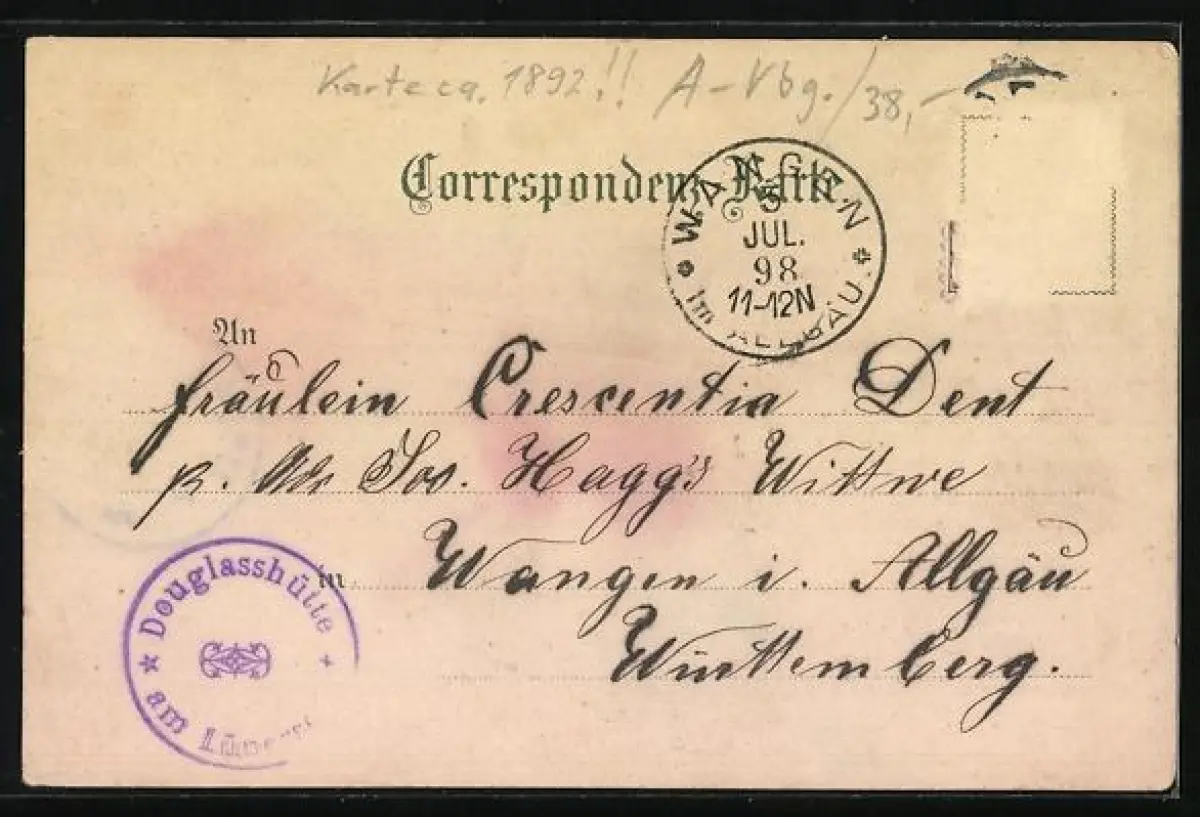 Karte ca. 1892!! A-Vbg./38,-
Correspondenz-Karte.
WANGEN
5
JUL.
98
11-12N
Im ALLGÄU.
An
Fräulein Crescentia Dent
p. Adr Jos. Hagg's Wittwe
in Wangen i. Allgäu
Württemberg.
Douglasshütte
am